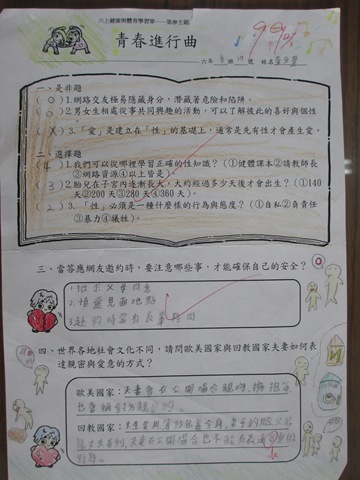 六上健康與體育學習單——第柒主題
青春進行曲
99
六年 班 號 姓名
一、是非題
(○)1.網路交友極易隱藏身分，潛藏著危險和陷阱。
(○)2.男女生相處從事共同興趣的活動，可以了解彼此的喜好與個性
(X)3.「愛」是建立在「性」的基礎上，通常是先有性才會產生愛。
二、選擇題
(4)1.我們可以從哪裡學習正確的性知識？(①健體課本②請教師長
③網路資源④以上皆是)。
(3)2.胎兒在子宮內逐漸長大，大約經過多少天後才會出生？(①140
天②200天③280天④360天)。
(2)3.「性」必須是一種什麼樣的行為與態度？(①自私②負責任
③暴力④犧牲)。
三、當答應網友邀約時，要注意哪些事，才能確保自己的安全？
1.徵求父母同意
2.慎選見面地點
3.赴約時需有長輩陪同
四、世界各地社會文化不同，請問歐美國家與回教國家夫妻如何表
達親密與愛意的方式？
歐美國家：夫妻會在公開場合親吻、擁抱
回教國家：